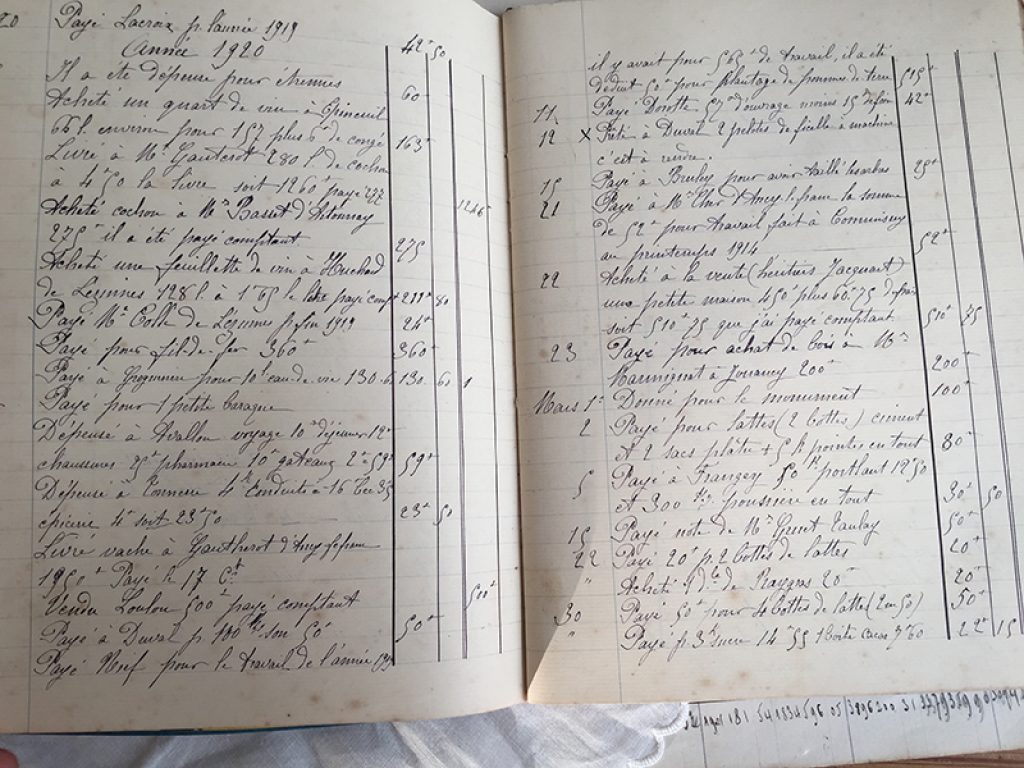 20 Payé Lacroix p. l'année 1919 42 50
Année 1920
Il a été dépensé pour étrennes 60
Acheté un quart de vin à Epineuil
66 l. environ pour 157 plus 6 de congé 163
Livré à Mr Gauterot 280 l. de cochon
à 4 50 la livre soit 1260 payé
Acheté cochon à Mr Basset d'Atonnay
275 il a été payé comptant 275
Acheté une feuillette de vin à Huchard
de Lezinnes 128 l. à 1 65 le litre payé compt 211 80
Payé Mr Colle de Lézinnes p. fin 1919 24
Payé pour fil-de-fer 360 360
Payé à pour 10 l eau de vie 130.6 130 60
Payé pour 1 petite baraque
Dépensé à Avallon voyage 10 déjeuner 12
chaussures 25 pharmacie 10 gâteaux 2 = 59 59
Dépensé à Tonnerre 4 16
épicerie 4 soit 23 50 23 50
Livré vache à Gautherot d'Ancy le franc
1950 Payé le 17 Ct
Vendu Loulou 500 payé comptant 500
Payé à Duval p. 100 k. son 50 50
Payé Nief pour le travail de l'année 19
il y avait pour 565 de travail, il a été
déduit 50 pour plantage de pommes de terre 515
11 Payé Dorotte 57 d'ouvrage moins 15 de foin 42
12 X Prêté à Duval 2 pelotes de ficelle à machine
c'est à rendre.
15 Payé à Bruley pour avoir taillé les arbres 25
21 Payé à Mr d'Ancy l. franc la somme
de 52 pour travail fait à Commissey
au printemps 1914 52
22 Acheté à la vente (héritiers Jacquart)
une petite maison 450 plus 60.75 de frais
soit 510 75 que j'ai payé comptant 510 75
23 Payé pour achat de bois à Mr
Mannignat à Jouancy 200 200
Mars 1er Donné pour le monument 100
2 Payé pour lattes (2 bottes) ciment
et 2 sacs plâtre + 5 k pointes en tout 80
5 Payé à Frangey 50 k portlant 12 50
et 300 k. poussier en tout 30 50
15 Payé note de Mr Genet Tanlay 50
22 Payé 20 p. 2 bottes de lattes 20
" Acheté de Raygras 20 20
30 Payé 50 pour 4 bottes de latte (2 en 50) 50
" Payé p. 3 k sucre 14 55 1 boîte cacao 7 60 22 15